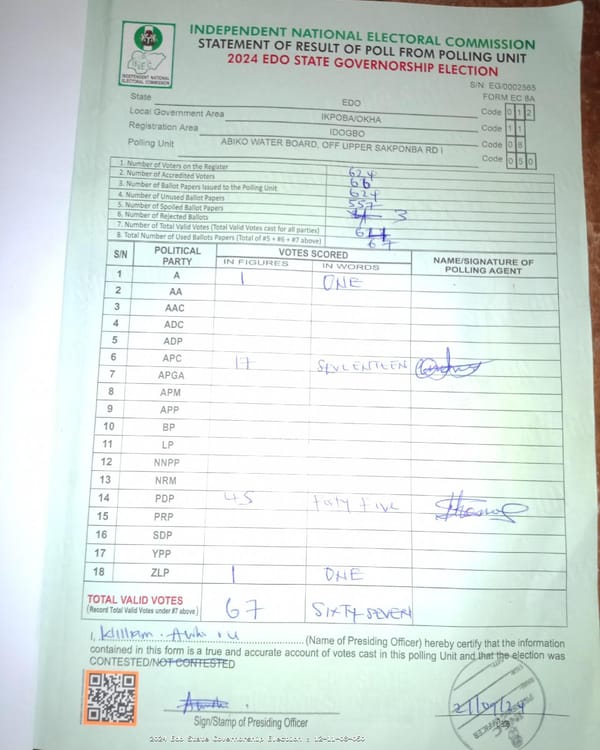 INDEPENDENT NATIONAL ELECTORAL COMMISSION
STATEMENT OF RESULT OF POLL FROM POLLING UNIT
2024 EDO STATE GOVERNORSHIP ELECTION
INDEPENDENT NATIONAL ELECTORAL COMMISSION
S/N: EG/0002565
FORM EC 8A
State EDO Code 012
Local Government Area IKPOBA/OKHA Code 11
Registration Area IDOGBO Code 08
Polling Unit ABIKO WATER BOARD, OFF UPPER SAKPONBA RD I Code 050
1. Number of Voters on the Register 624
2. Number of Accredited Voters 66
3. Number of Ballot Papers Issued to the Polling Unit 624
4. Number of Unused Ballot Papers 557
5. Number of Spoiled Ballot Papers
6. Number of Rejected Ballots 3
7. Number of Total Valid Votes (Total Valid Votes cast for all parties)
8. Total Number of Used Ballots Papers (Total of #5 + #6 + #7 above) 67
S/N POLITICAL PARTY VOTES SCORED NAME/SIGNATURE OF POLLING AGENT
IN FIGURES IN WORDS
1 A 1 ONE
2 AA
3 AAC
4 ADC
5 ADP
6 APC 17
7 APGA
8 APM
9 APP
10 BP
11 LP
12 NNPP
13 NRM
14 PDP 45
15 PRP
16 SDP
17 YPP
18 ZLP 1 ONE
TOTAL VALID VOTES 67 SIXTY SEVEN
(Record Total Valid Votes under #7 above)
I, (Name of Presiding Officer) hereby certify that the information
contained in this form is a true and accurate account of votes cast in this polling Unit and that the election was
CONTESTED/NOT CONTESTED
Sign/Stamp of Presiding Officer
21/09/24
2024 Edo State Governorship Election : 12-11-08-050